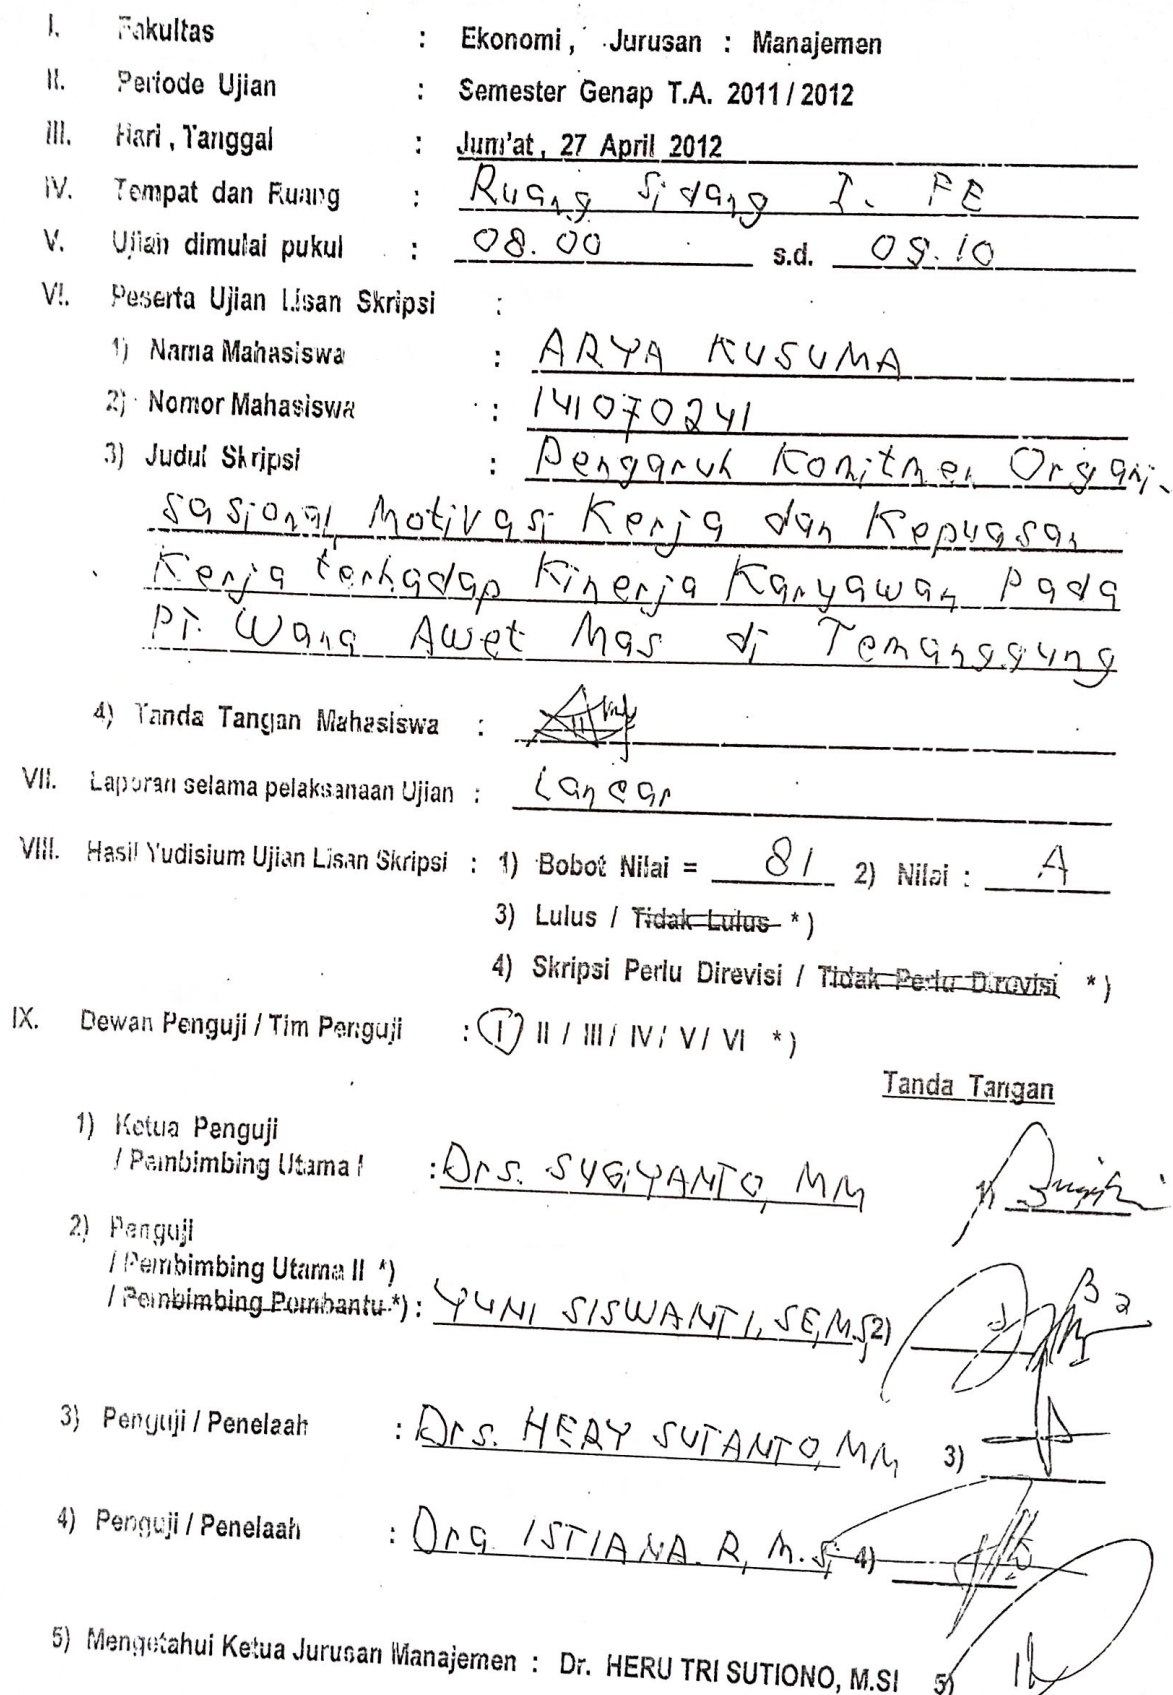 I. Fakultas : Ekonomi, Jurusan : Manajemen
II. Periode Ujian : Semester Genap T.A. 2011 / 2012
III. Hari, Tanggal : Jum'at, 27 April 2012
IV. Tempat dan Ruang : Ruang Sidang I. FE
V. Ujian dimulai pukul : 08.00 s.d. 09.10
VI. Peserta Ujian Lisan Skripsi :
1) Nama Mahasiswa : ARYA KUSUMA
2) Nomor Mahasiswa : 141070241
3) Judul Skripsi : Pengaruh Komitmen Organi-
sasional, Motivasi Kerja dan Kepuasan
Kerja terhadap Kinerja Karyawan pada
PT. Wana Awet Mas di Temanggung
4) Tanda Tangan Mahasiswa :
VII. Laporan selama pelaksanaan Ujian : Lancar
VIII. Hasil Yudisium Ujian Lisan Skripsi : 1) Bobot Nilai = 81 2) Nilai : A
3) Lulus / Tidak Lulus *)
4) Skripsi Perlu Direvisi / Tidak Perlu Direvisi *)
IX. Dewan Penguji / Tim Penguji : I / II / III / IV / V / VI *)
Tanda Tangan
1) Ketua Penguji
/ Pembimbing Utama I : Drs. SUGIYANTO, MM 1)
2) Penguji
/ Pembimbing Utama II *)
/ Pembimbing Pembantu *) : YUNI SISWANTI, SE, M.Si 2)
3) Penguji / Penelaah : Drs. HERY SUTANTO, MM 3)
4) Penguji / Penelaah : Dra. ISTIANA. R, M.Si 4)
5) Mengetahui Ketua Jurusan Manajemen : Dr. HERU TRI SUTIONO, M.SI 5)